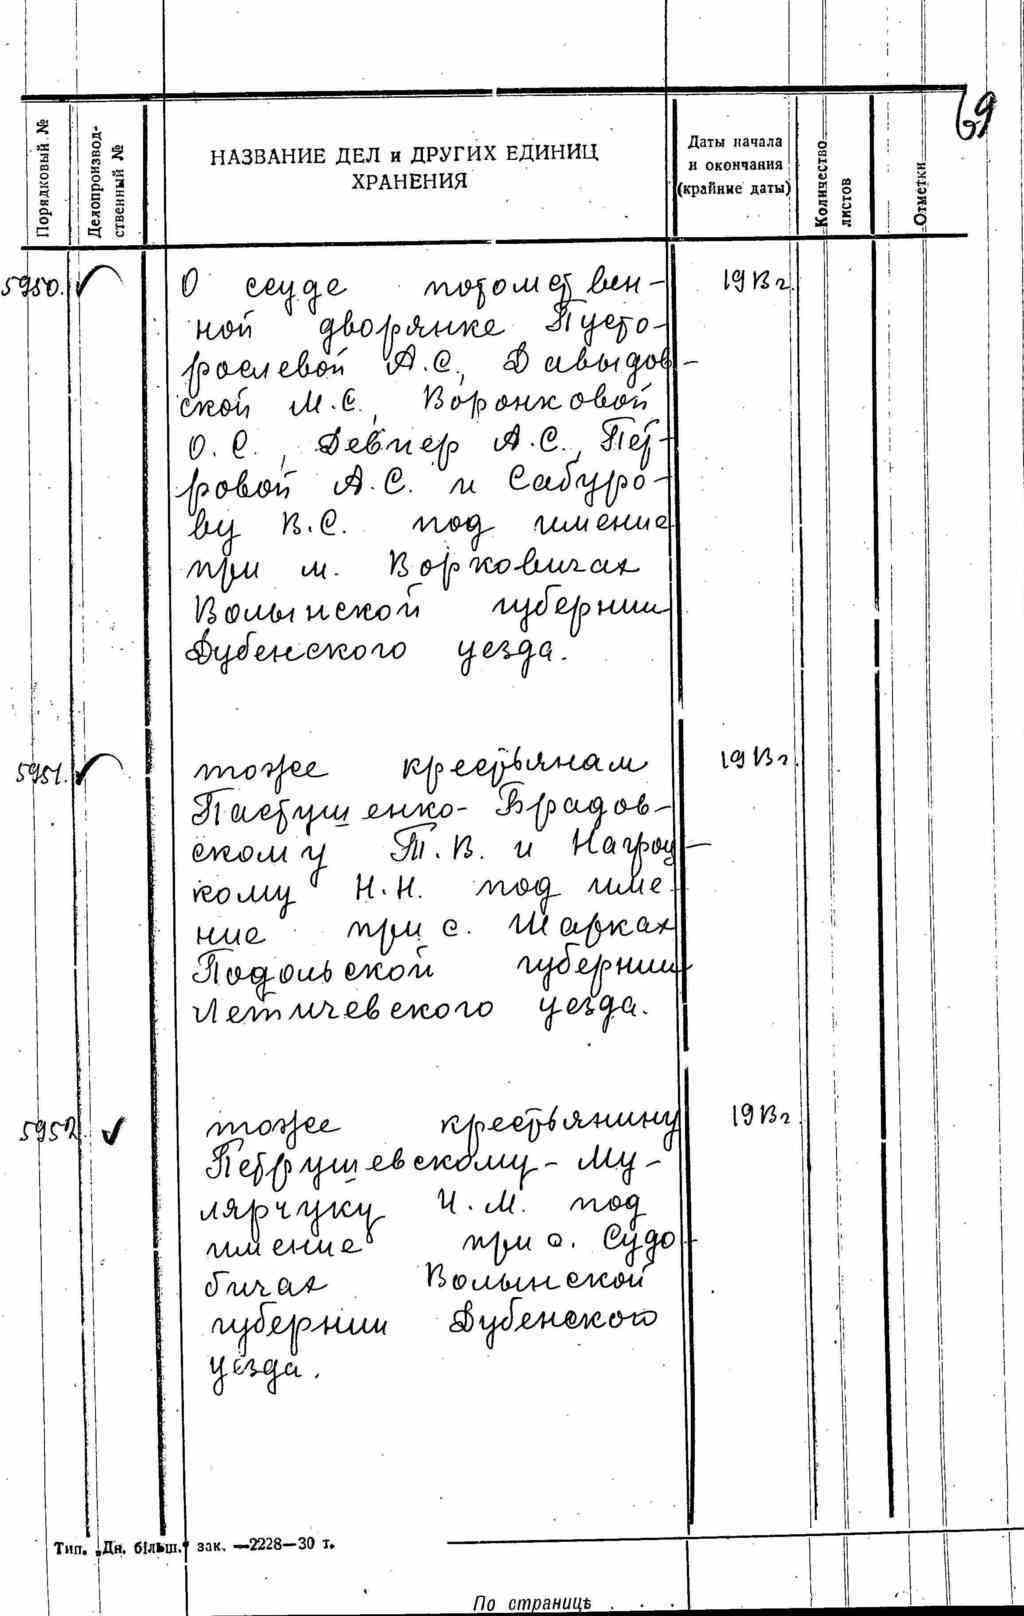 69
Порядковый №
Делопроизвод-
ственный №
НАЗВАНИЕ ДЕЛ и ДРУГИХ ЕДИНИЦ
ХРАНЕНИЯ
Даты начала
и окончания
(крайние даты)
Количество
листов
Отметки
5950.
О ссуде потомствен-
ной дворянке Пусто-
рослевой А.С., Давыдов-
ской М.С., Воронковой
О.С., Девпер А.С., Пет-
ровой А.С. и Сабуро-
ву В.С. под имение
при м. Ворковичах
Волынской губернии
Дубенского уезда.
1913 г.
5951.
тоже крестьянам
Пастушенко-Брадов-
скому Т.В. и Нагроц-
кому Н.Н. под име-
ние при с. Шарках
Подольской губернии
Летичевского уезда.
1913 г.
5952.
тоже крестьянину
Петрушевскому-Му-
лярчуку И.М. под
имение при с. Судо-
бичах Волынской
губернии Дубенского
уезда.
1913 г.
Тип. „Дн. більш." зак. —2228—30 т.
По странице . . .